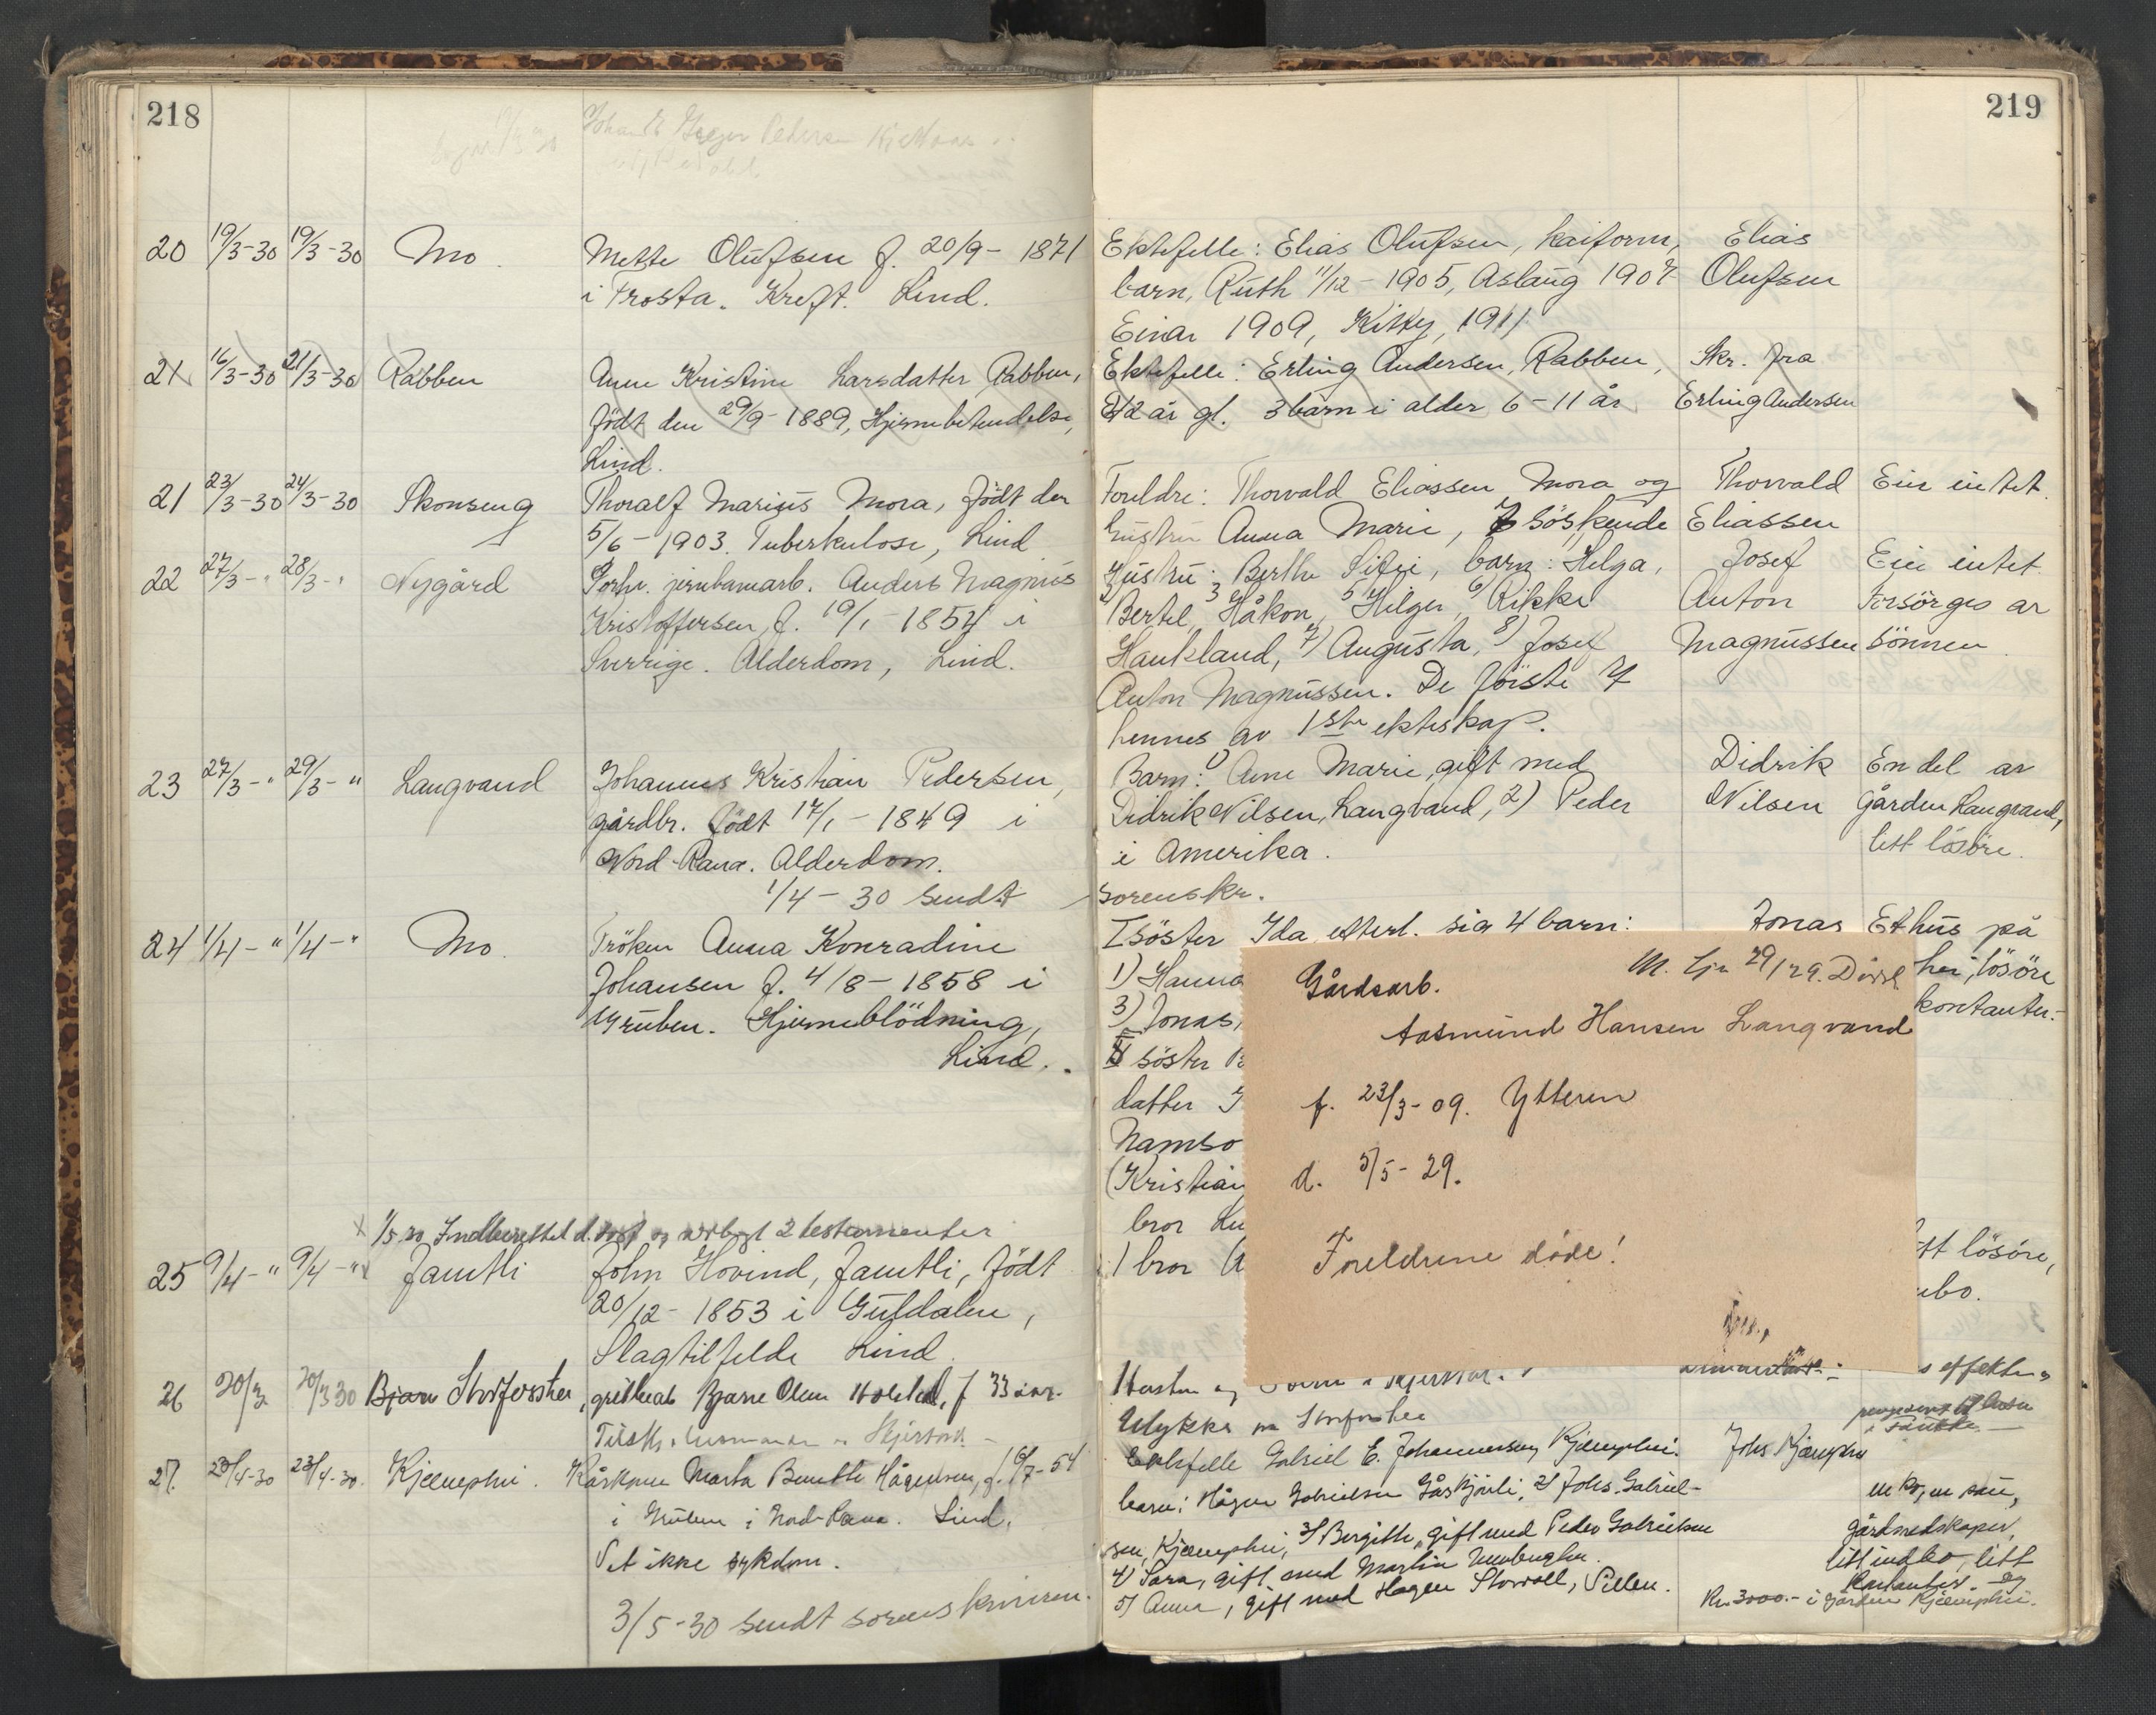 218
219
20 19/3-30 19/3-30 Mo. Mette Olufsen f. 20/9-1871
i Frosta. Kreft. Lind.
Ektefelle: Elias Olufsen, kaiform,
barn, Ruth 11/12-1905, Aslaug 1907
Einar 1909, Kitty, 1911
Elias
Olufsen
21 16/3-30 21/3-30 Rabben Anne Kristine Larsdatter Rabben,
født den 29/9-1889, Hjernebetendelse,
Lind.
Ektefelle: Erling Andersen, Rabben,
42 år gl. 3 barn i alder 6-11 år
Skr. fra
Erling Andersen
21 23/3-30 24/3-30 Skonseng Thoralf Marius Mora, født den
5/6-1903. Tuberkulose, Lind
Foreldre: Thorvald Eliassen Mora og
hustru Anna Marie, 7 søskende
Thorvald
Eliassen
Eier intet.
22 27/3-" 28/3-" Nygård Forhv. jernbanearb. Anders Magnus
Kristoffersen, f. 19/1-1854 i
Sverrige. Alderdom, Lind.
Hustru: Berthe Sifie, barn: Helga,
2) Bertel, 3 Håkon, 5 Helger, 6) Rikke
Haukland, 7) Augusta, 8) Josef
Anton Magnussen. De første 7
hennes av 1ste ekteskap.
Josef
Anton
Magnussen
Eier intet.
Forsørges av
sønnen.
23 27/3-" 29/3-" Langvand Johannes Kristian Pedersen,
gårdbr. født 17/1-1849 i
Nord-Rana. Alderdom.
1/4-30 sendt sorenskr.
Barn: 1) Anne Marie, gift med
Didrik Nilsen, Langvand, 2) Peder
i Amerika.
Didrik
Nilsen
En del av
gården Langvand,
litt løsøre.
24 1/4-" 1/4-" Mo. Frøken Anna Konradine
Johansen f. 4/8-1858 i
Gruben. Hjerneblødning,
Lind.
I søster Ida, efterl. sig 4 barn:
1) Hanna
3) Jonas,
II søster
datter
Namso
(Kristian
bror
1 bror
Jonas
Et hus på
løsøre
kontanter.-
Gårdsarb.
29/29.
Aasmund Hansen Langvand
f. 23/3-09. Ytteren
d. 5/5-29.
Foreldrene døde!
1/5 30 Indberettet d. og 2 testamenter
25 9/4-" 9/4-" Jamtli John Hovind, Jamtli, født
20/12-1853 i Guldalen,
Slagtilfelde Lind.
løsøre,
26 20/3 20/3 30 Bjarn Storforshei, Bjarne Olsen f 33 aar.
Ulykke på Storforshei
effekter
27. 23/4-30 23/4-30. Kjæmphei. Kårkone Marta Benette Hågensen, f. 16/7-54
i Gruben i Nord-Rana. Lind.
Vet ikke sykdom.
3/5-30 sendt sorenskriveren.
Ektefelle Gabriel E. Johannesen, Kjæmphei.
barn: Hågen Gabrielsen Gåskjønli, 2) Johs. Gabriel-
sen, Kjæmphei, 3) Bergitte, gift med Peder Gabrielsen
4) Sara, gift med Martin
5) Anna, gift med Hagen Storvoll, Sellen.
Johs Kjæmphei
en ko, en sau,
gårdredskaper,
litt indbo, litt
kontanter. og
Kr. 3000.- i gården Kjæmphei.